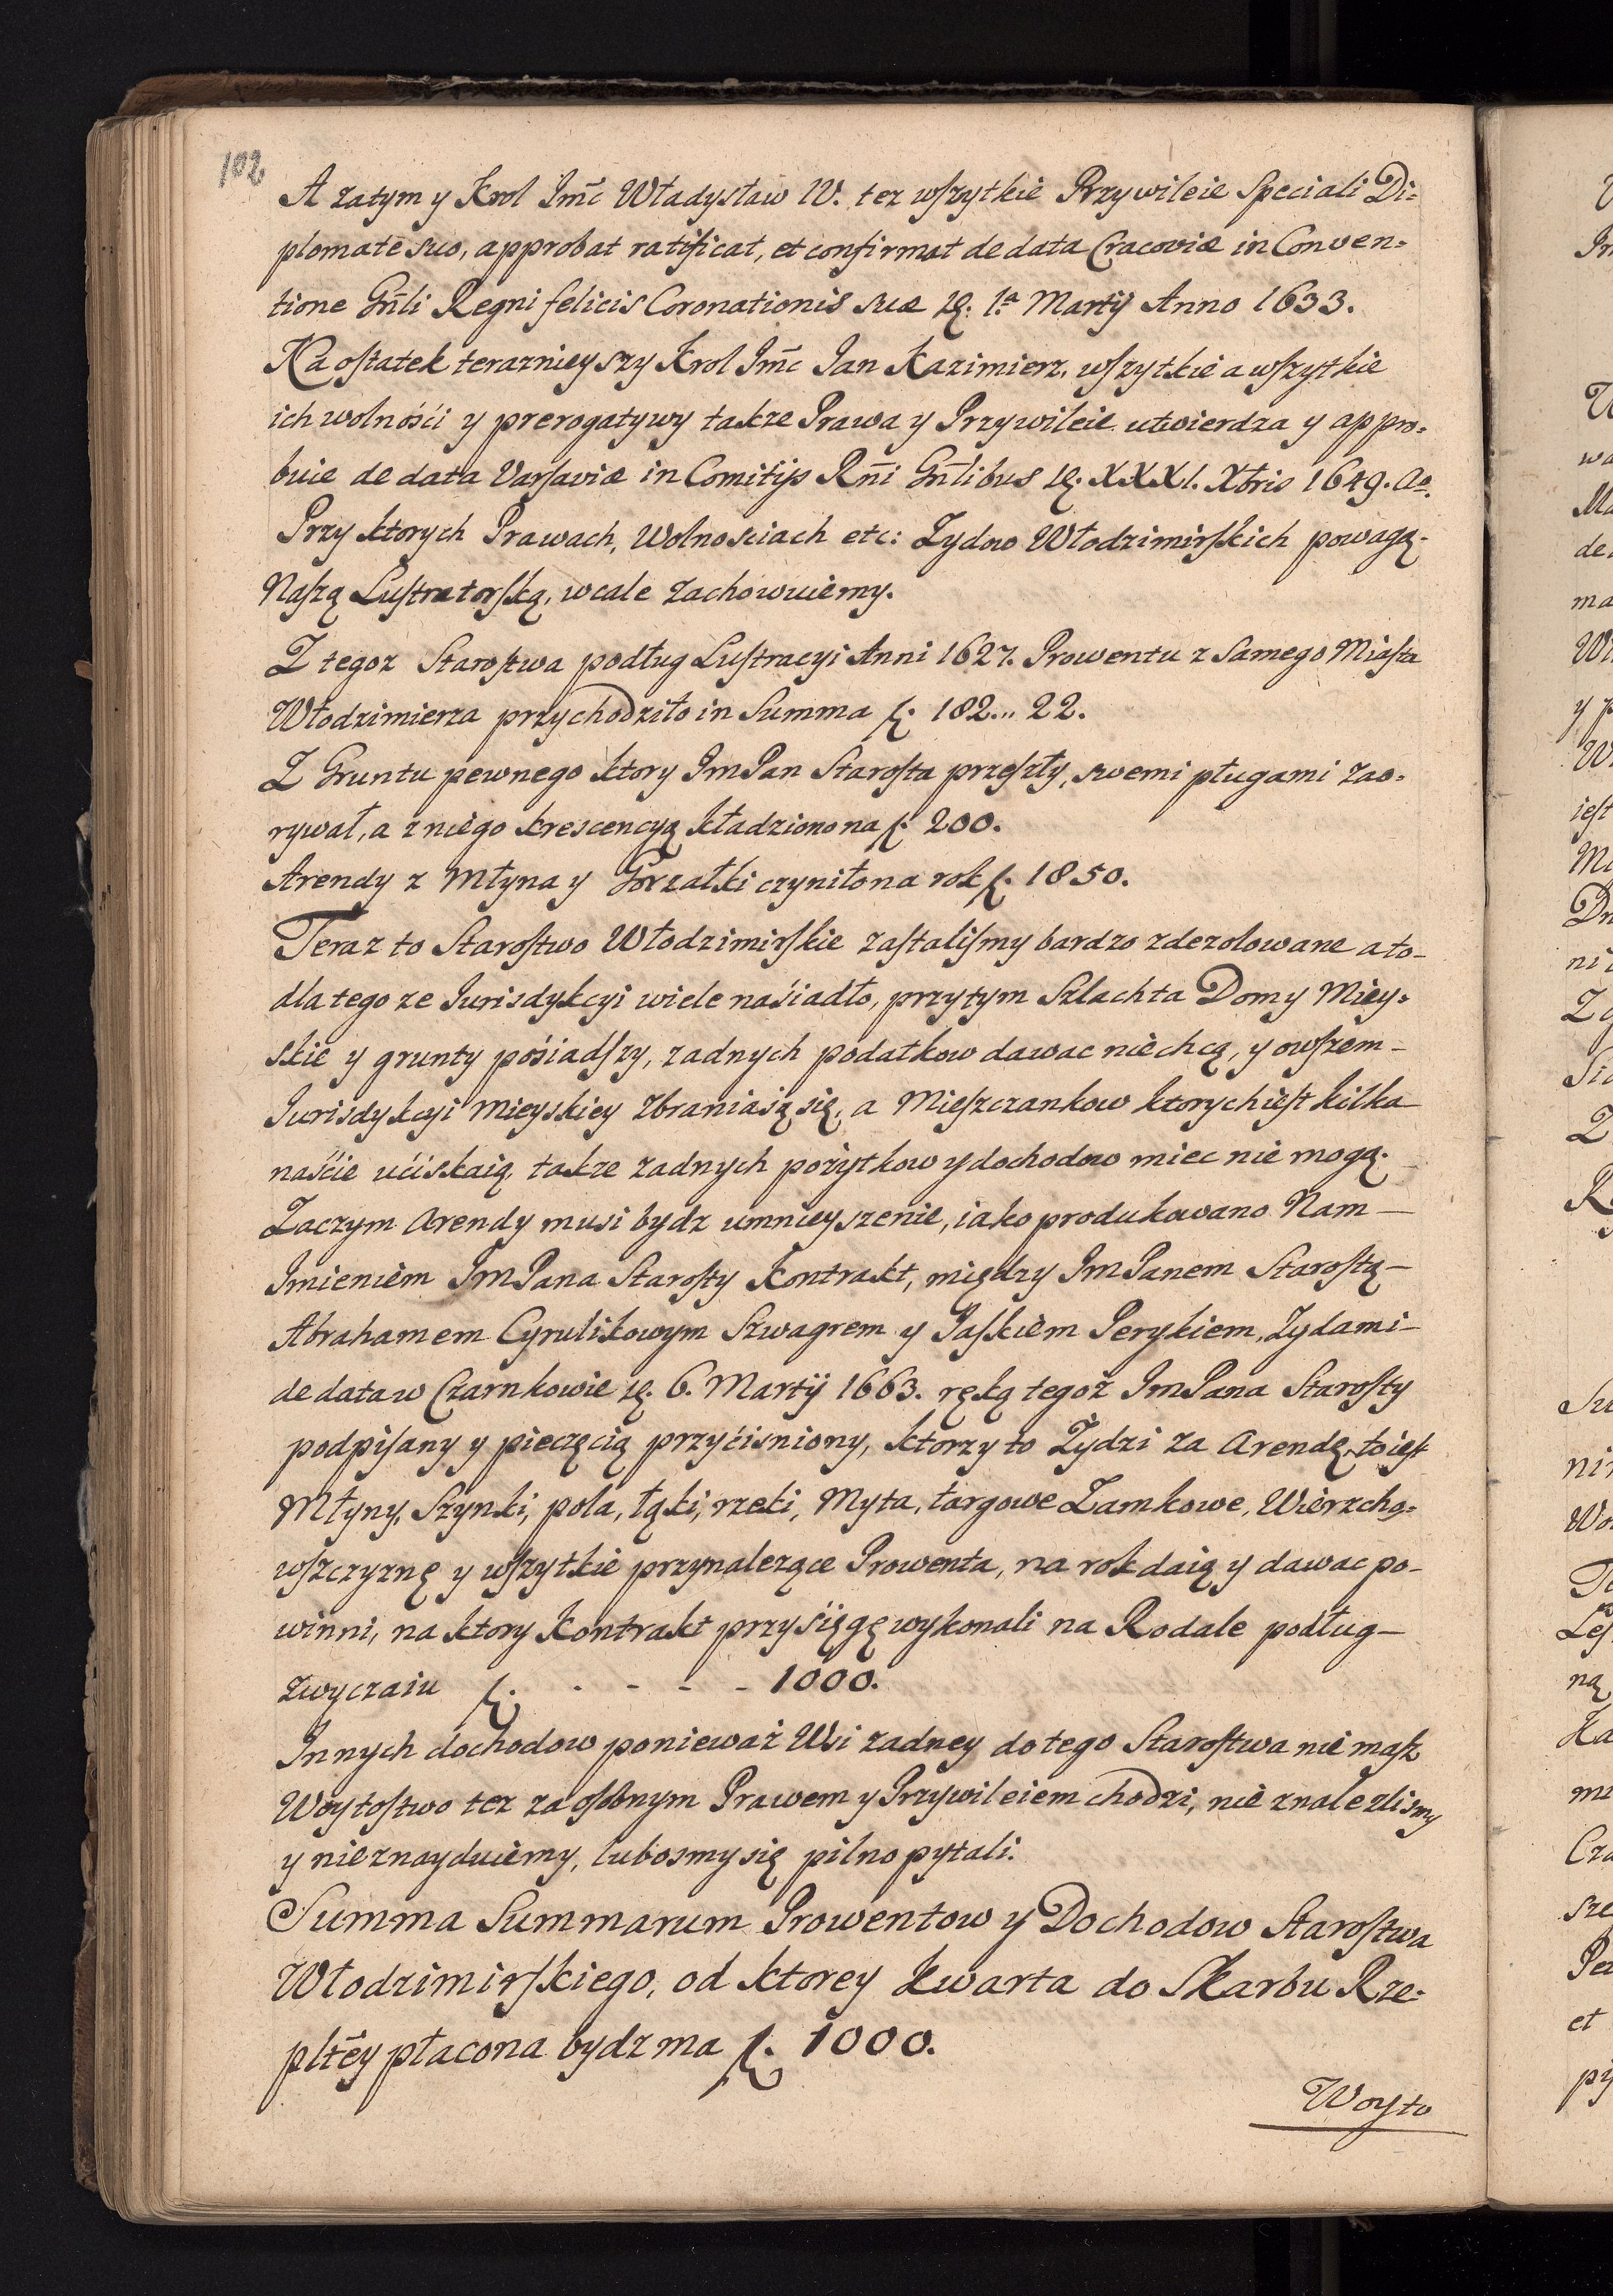 102
A zatym y Krol Jmc̃ Władysław IV. tez wszytkie Przywileie Speciali Di=
plomate suo, approbat ratificat, et confirmat de data Cracoviæ in Conven=
tione Gnli Regni felicis Coronationis suæ 1ª Martij Anno 1633.
Na ostatek terazniey szy Krol Jmc̃ Jan Kazimierz, wszytkie a wszytkie
ich wolnośći y prerogatywy takze Prawa y Przywileie utwierdza y appro=
buie de data Varsaviæ in Comitijs Rñi Gñlibus XXXI. Xbris 1649. Aº.
Przy ktorych Prawach, Wolnosciach etc: Zydow Włodzimirskich powagą-
Naszą Lustratorską, wcale zachowuiemy.
Z tegoz Starostwa podług Lustracyi Anni 1627. Prowentu z Samego Miasta
Włodzimierza przychodziło in Summa f. 182... 22.
Z Gruntu pewnego ktory Jm Pan Starosta przeszły, swemi pługami zao=
rywał, a z niego krescencyą kładziono na f. 200.
Arendy z Młyna y Gorzałki czyniło na rok f. 1850.
Teraz to Starostwo Włodzimirskie zastalismy bardzo zdezolowane a to-
dla tego ze Jurisdykcyi wiele naśiadło, przytym Szlachta Domy Miey=
skie y grunty pośiadszy, zadnych podatkow dawac nie chcą, y owszem-
Jurisdykcyi Mieyskiey zbraniaią się, a Mieszczankow ktorych iest kilka-
naśćie ućiskaią, takze zadnych pożytkow y dochodow miec nie mogą.
Zaczym Arendy musi bydz umnieyszenie, iako produkowano Nam-
Jmieniem Jm Pana Starosty Kontrakt, między Jm Panem Starostą-
Abrahamem Cyrulikowym Szwagrem y Paskiem Perykiem, Zydami-
de data w Czarnkowie 6. Martij 1663. ręką tegoż Jm Pana Starosty
podpisany y pieczęcią przyćisniony, ktorzy to Żydzi za Arendę, to iest
Młyny, Szynki, pola, łąki, rzeki, Myta, targowe Zamkowe, Wierzcho=
wszczyznę y wszytkie przynalezące Prowenta, na rok daią y dawac po-
winni, na ktory Kontrakt przyśięgę wykonali na Rodale podług-
zwyczaiu f. - - - - 1000.
Innych dochodow ponieważ Wsi zadney do tego Starostwa nie masz
Woytostwo tez za osobnym Prawem y Przywileiem chodzi, nie znalezlismy
y nie znayduiemy, lubosmy się pilno pytali.
Summa Summarum Prowentow y Dochodow Starostwa
Włodzimirskiego, od ktorey kwarta do Skarbu Rze=
pltey płacona bydz ma f. 1000.
Woyto